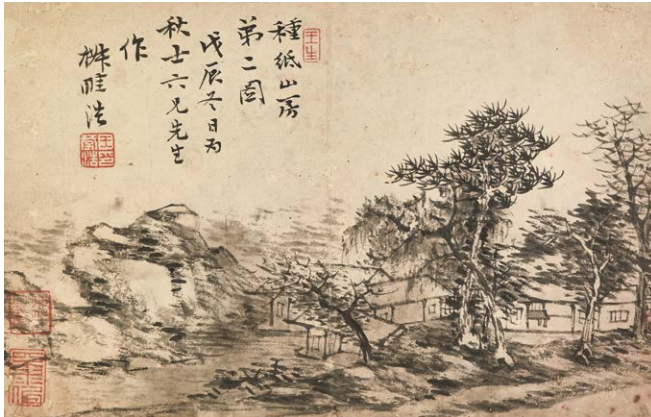 王生
種紙山房
弟二圖
戊辰冬日為
秋士六兄先生
作
椒畦浩